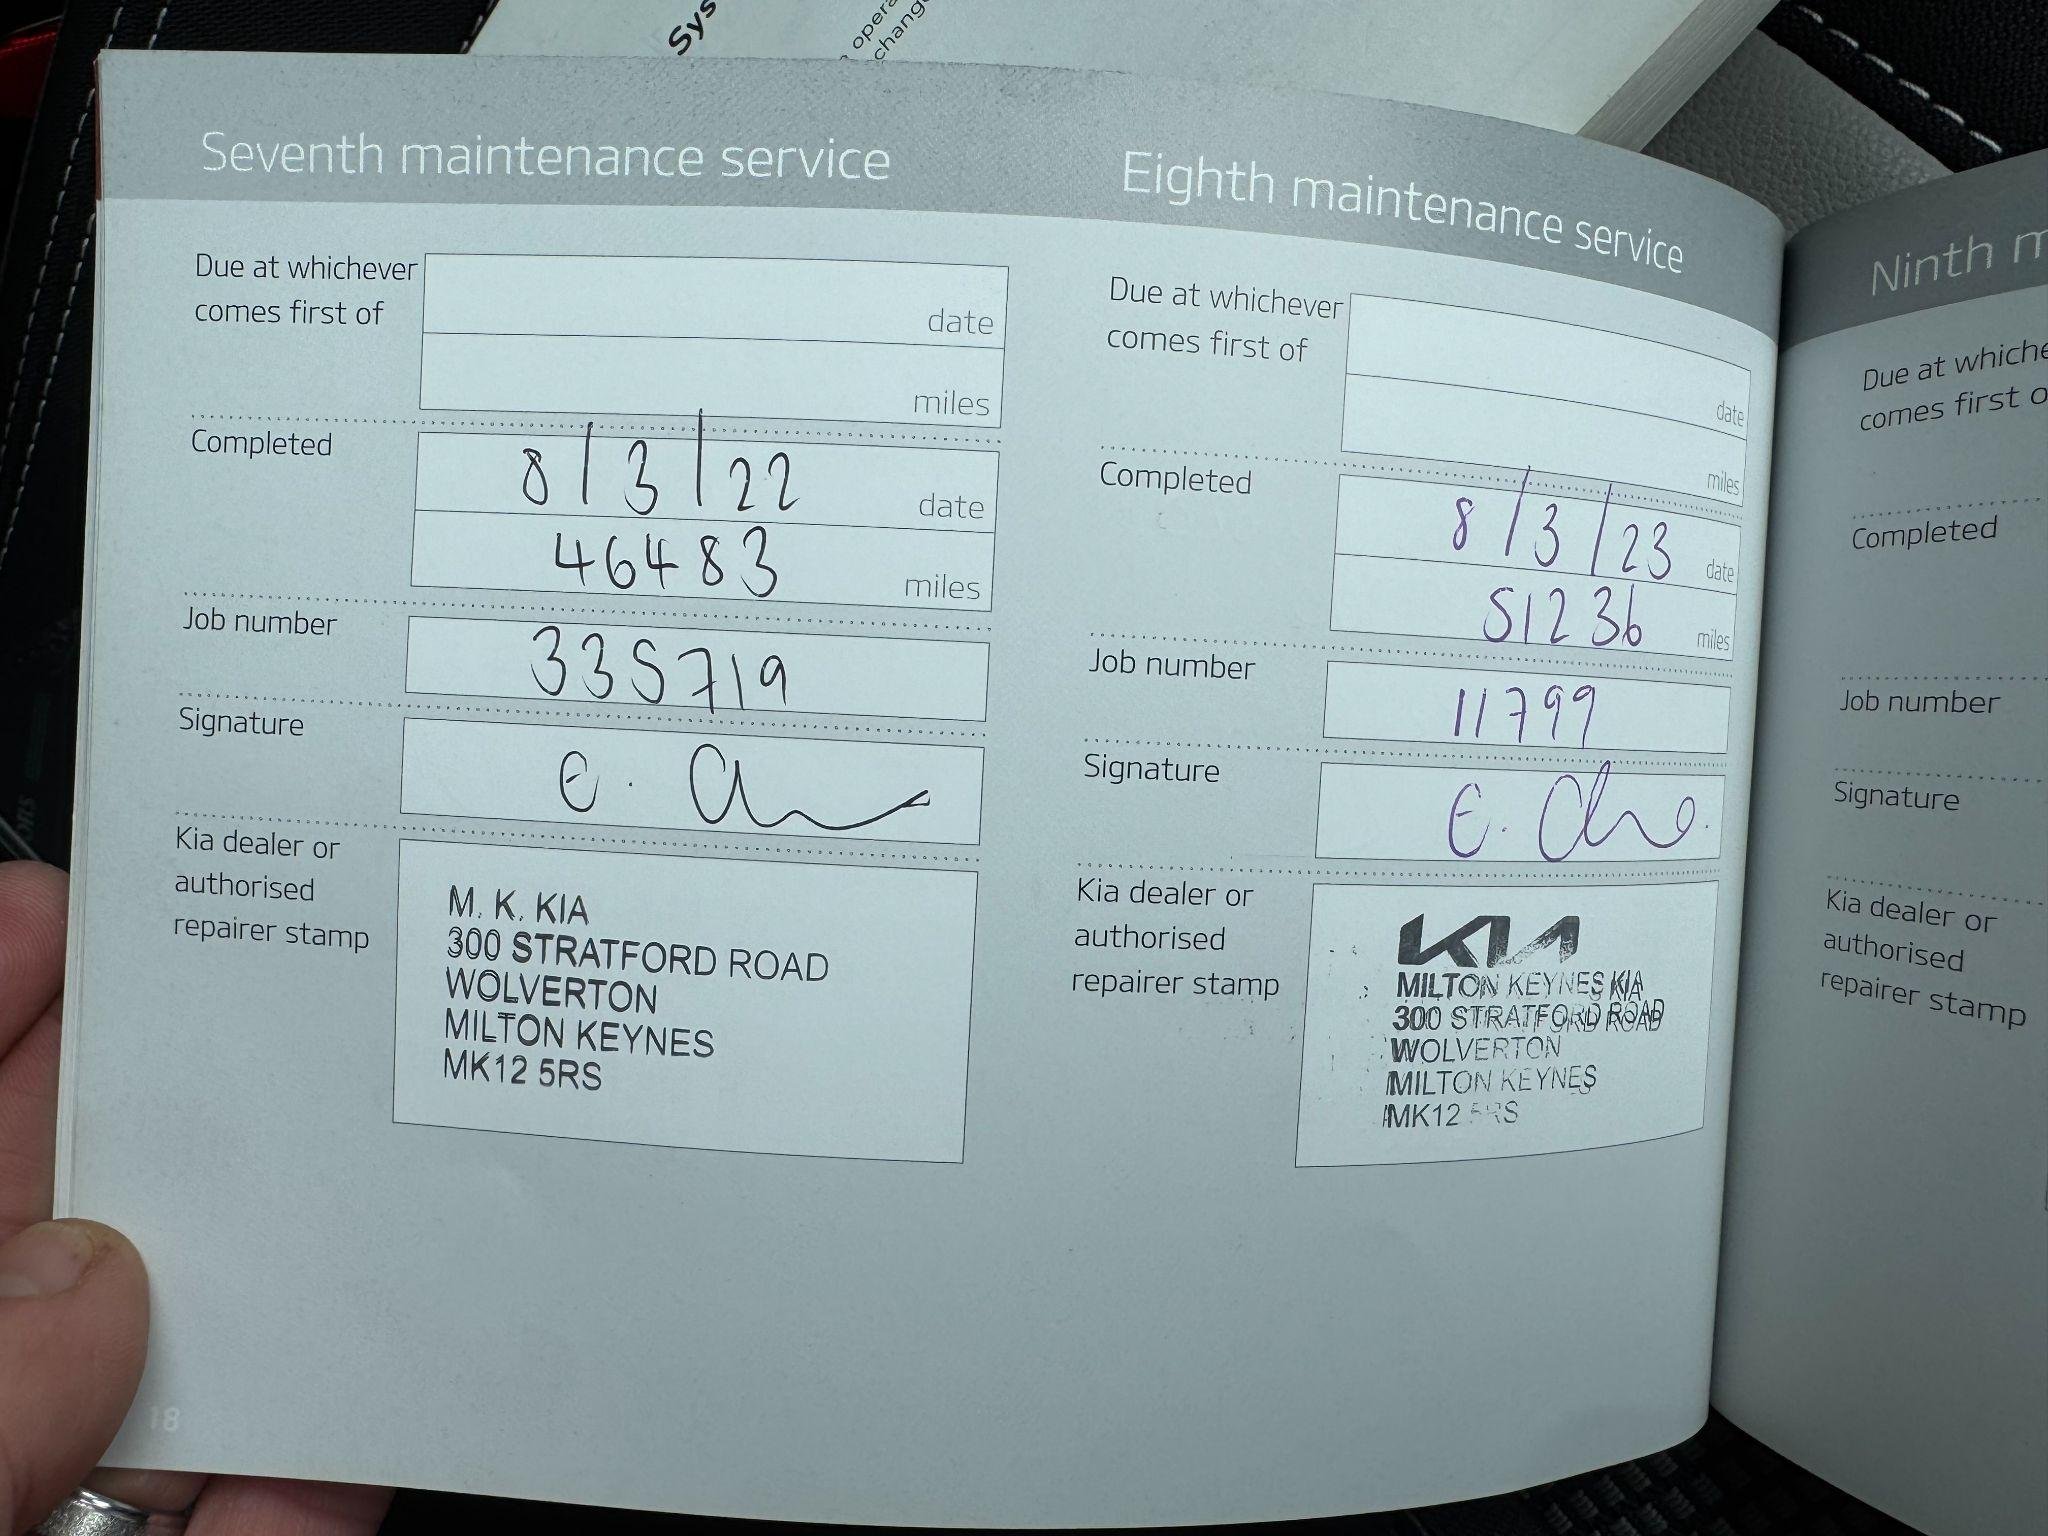 Sys
opera
change
Seventh maintenance service
Due at whichever
comes first of
date
miles
Completed
8/3/22
date
46483
miles
Job number
335719
Signature
Kia dealer or
authorised
repairer stamp
M. K. KIA
300 STRATFORD ROAD
WOLVERTON
MILTON KEYNES
MK12 5RS
18
Eighth maintenance service
Due at whichever
comes first of
date
miles
Completed
8/3/23
date
51236
miles
Job number
11799
Signature
Kia dealer or
authorised
repairer stamp
KIA
MILTON KEYNES KIA
300 STRATFORD ROAD
WOLVERTON
MILTON KEYNES
MK12 5RS
Ninth m
Due at whiche
comes first o
Completed
Job number
Signature
Kia dealer or
authorised
repairer stamp